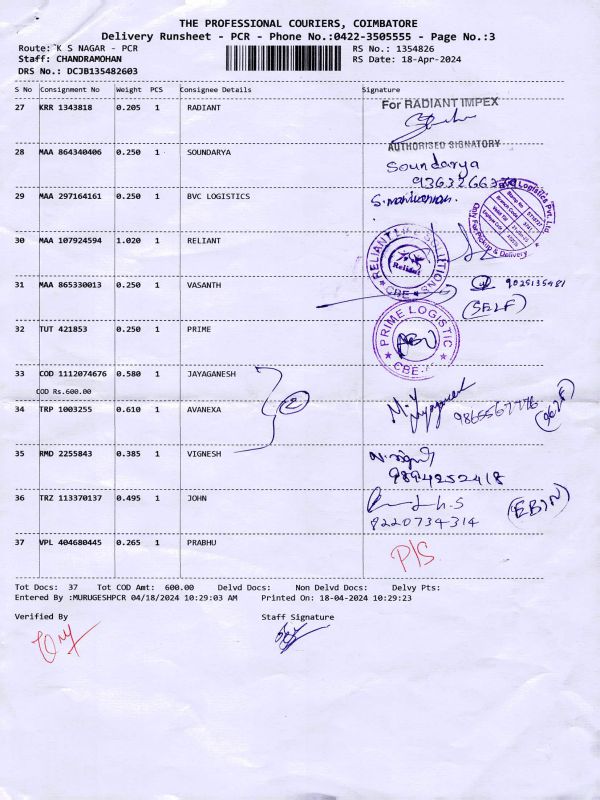 THE PROFESSIONAL COURIERS, COIMBATORE
Delivery Runsheet - PCR - Phone No.:0422-3505555 - Page No.:3
Route: K S NAGAR - PCR
RS No.: 1354826
Staff: CHANDRAMOHAN
RS Date: 18-Apr-2024
DRS No.: DCJB135482603
S No Consignment No Weight PCS Consignee Details Signature
27 KRR 1343818 0.205 1 RADIANT
For RADIANT IMPEX
AUTHORISED SIGNATORY
28 MAA 864340406 0.250 1 SOUNDARYA
Soundarya
29 MAA 297164161 0.250 1 BVC LOGISTICS
30 MAA 107924594 1.020 1 RELIANT
Reliant
CBE
31 MAA 865330013 0.250 1 VASANTH
9025135481
(SELF)
32 TUT 421853 0.250 1 PRIME
PRIME LOGISTIC
CBE
33 COD 1112074676 0.580 1 JAYAGANESH
COD Rs.600.00
34 TRP 1003255 0.610 1 AVANEXA
9865567776
35 RMD 2255843 0.385 1 VIGNESH
9894252418
36 TRZ 113370137 0.495 1 JOHN
8220734314
(EBIN)
37 VPL 404680445 0.265 1 PRABHU
P/S
Tot Docs: 37 Tot COD Amt: 600.00 Delvd Docs: Non Delvd Docs: Delvy Pts:
Entered By :MURUGESHPCR 04/18/2024 10:29:03 AM Printed On: 18-04-2024 10:29:23
Verified By Staff Signature